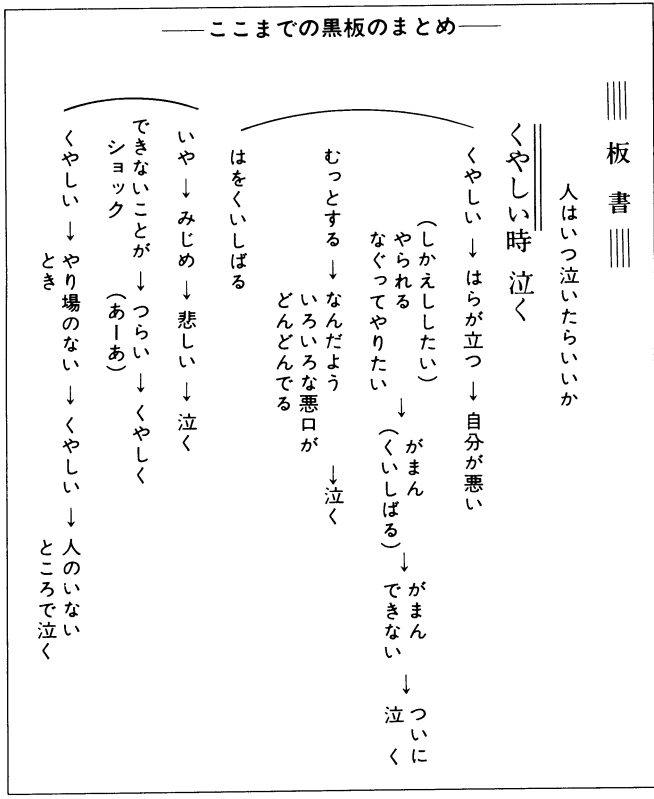 ――ここまでの黒板のまとめ――
板書
人はいつ泣いたらいいか
くやしい時 泣く
くやしい → はらが立つ → 自分が悪い
(しかえししたい)
やられる
なぐってやりたい
→
がまん
(くいしばる)
→
がまん
できない
→
ついに
泣く
むっとする → なんだよう
いろいろな悪口が
どんどんでる
→泣く
はをくいしばる
いや → みじめ → 悲しい → 泣く
できないことが
ショック
→ つらい → くやしく
(あーあ)
くやしい → やり場のない
とき
→ くやしい → 人のいない
ところで泣く